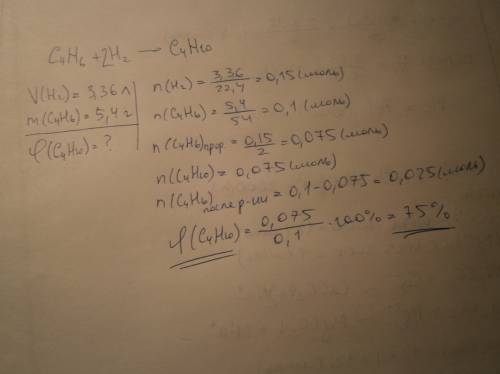 C₄H₆ + 2H₂ → C₄H₁₀
V(H₂) = 3,36 л
m(C₄H₆) = 5,4 г
φ(C₄H₁₀) = ?
n(H₂) = 3,36/22,4 = 0,15 (моль)
n(C₄H₆) = 5,4/54 = 0,1 (моль)
n(C₄H₆)прор. = 0,15/2 = 0,075 (моль)
n(C₄H₁₀) = 0,075 (моль)
n(C₄H₆)после р-ии = 0,1 - 0,075 = 0,025 (моль)
φ(C₄H₁₀) = 0,075/0,1 · 100% = 75%